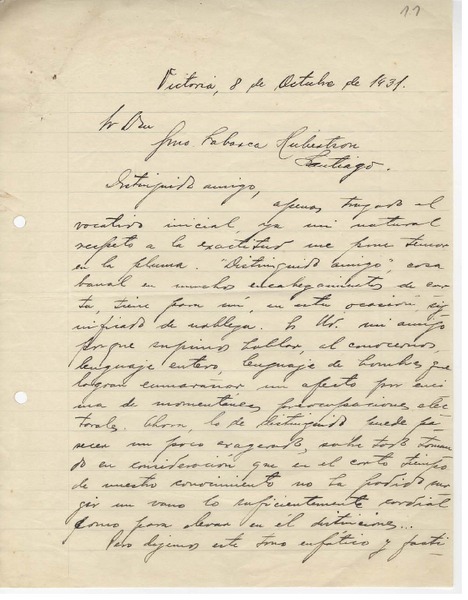 11
Victoria, 8 de Octubre de 1931.
Sr Don
Gmo Labarca Hubertson
Santiago.
Distinguido amigo,
apenas trazado el
vocativo inicial, ya mi natural
respeto a la exactitud me pone temor
en la pluma. "Distinguido amigo", cosa
banal en muchos encabezamientos de car-
ta, tiene para mí, en esta ocasión, sig
nificado de nobleza. Es Ud. mi amigo
porque supimos hablar, al conocernos,
lenguaje entero, lenguaje de hombres que
logran enmarañar un afecto por enci
ma de momentáneas preocupaciones elec
torales. Ahora, lo de distinguido puede pa-
recer un poco exagerado, sobre todo toman
do en consideración que en el corto tiempo
de nuestro conocimiento no ha podido sur
gir un vano lo suficientemente cordial
como para elevar en él distinciones...
Pero dejemos este tono enfático y